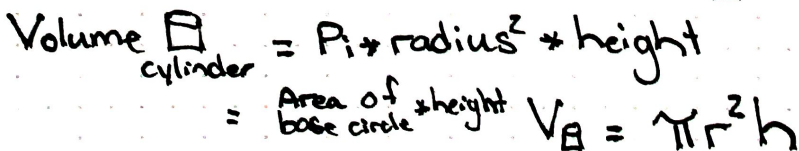 Volume cylinder = Pi * radius² * height
= Area of base circle * height V = πr²h